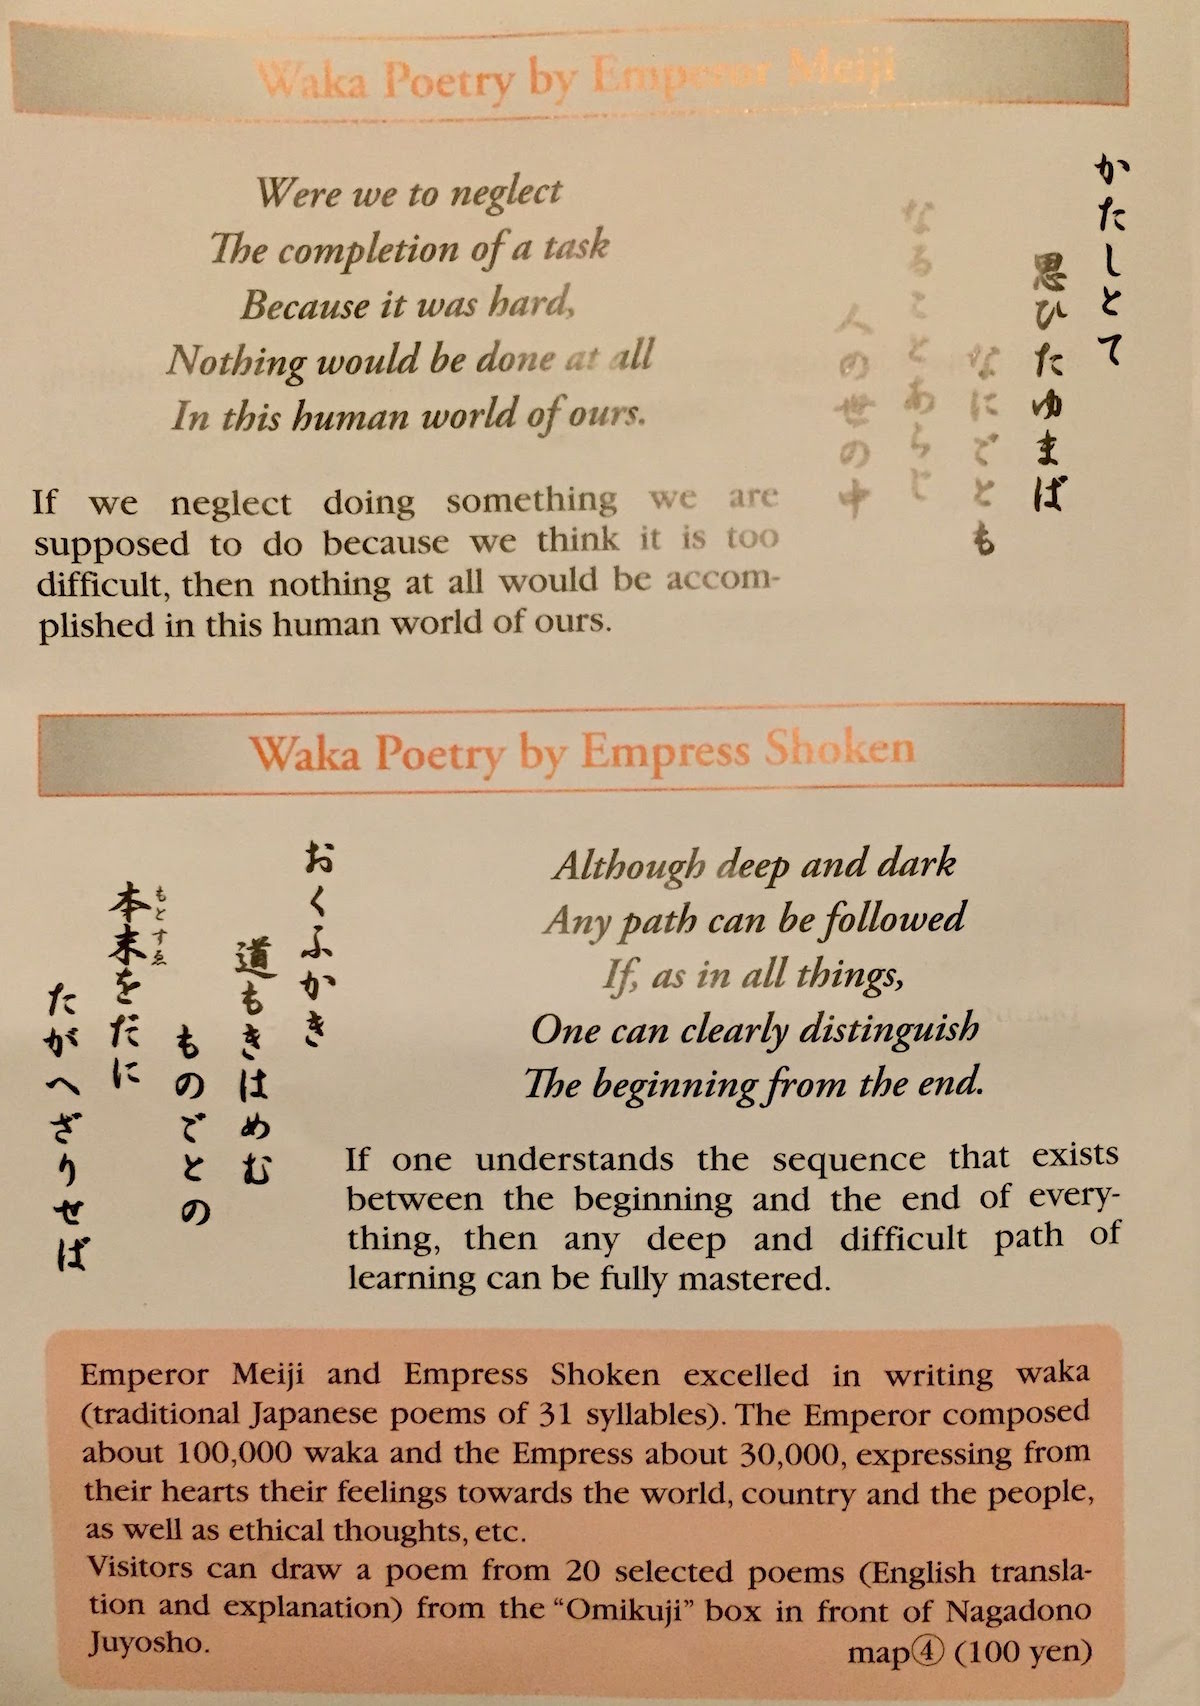 Waka Poetry by Emperor Meiji
Were we to neglect
The completion of a task
Because it was hard,
Nothing would be done at all
In this human world of ours.
かたしとて
思ひたゆまば
なにごとも
なることあらじ
人の世の中
If we neglect doing something we are
supposed to do because we think it is too
difficult, then nothing at all would be accom-
plished in this human world of ours.
Waka Poetry by Empress Shoken
おくふかき
道もきはめむ
ものごとの
本末をだに
もとすゑ
たがへざりせば
Although deep and dark
Any path can be followed
If, as in all things,
One can clearly distinguish
The beginning from the end.
If one understands the sequence that exists
between the beginning and the end of every-
thing, then any deep and difficult path of
learning can be fully mastered.
Emperor Meiji and Empress Shoken excelled in writing waka
(traditional Japanese poems of 31 syllables). The Emperor composed
about 100,000 waka and the Empress about 30,000, expressing from
their hearts their feelings towards the world, country and the people,
as well as ethical thoughts, etc.
Visitors can draw a poem from 20 selected poems (English transla-
tion and explanation) from the “Omikuji” box in front of Nagadono
Juyosho.
map④ (100 yen)